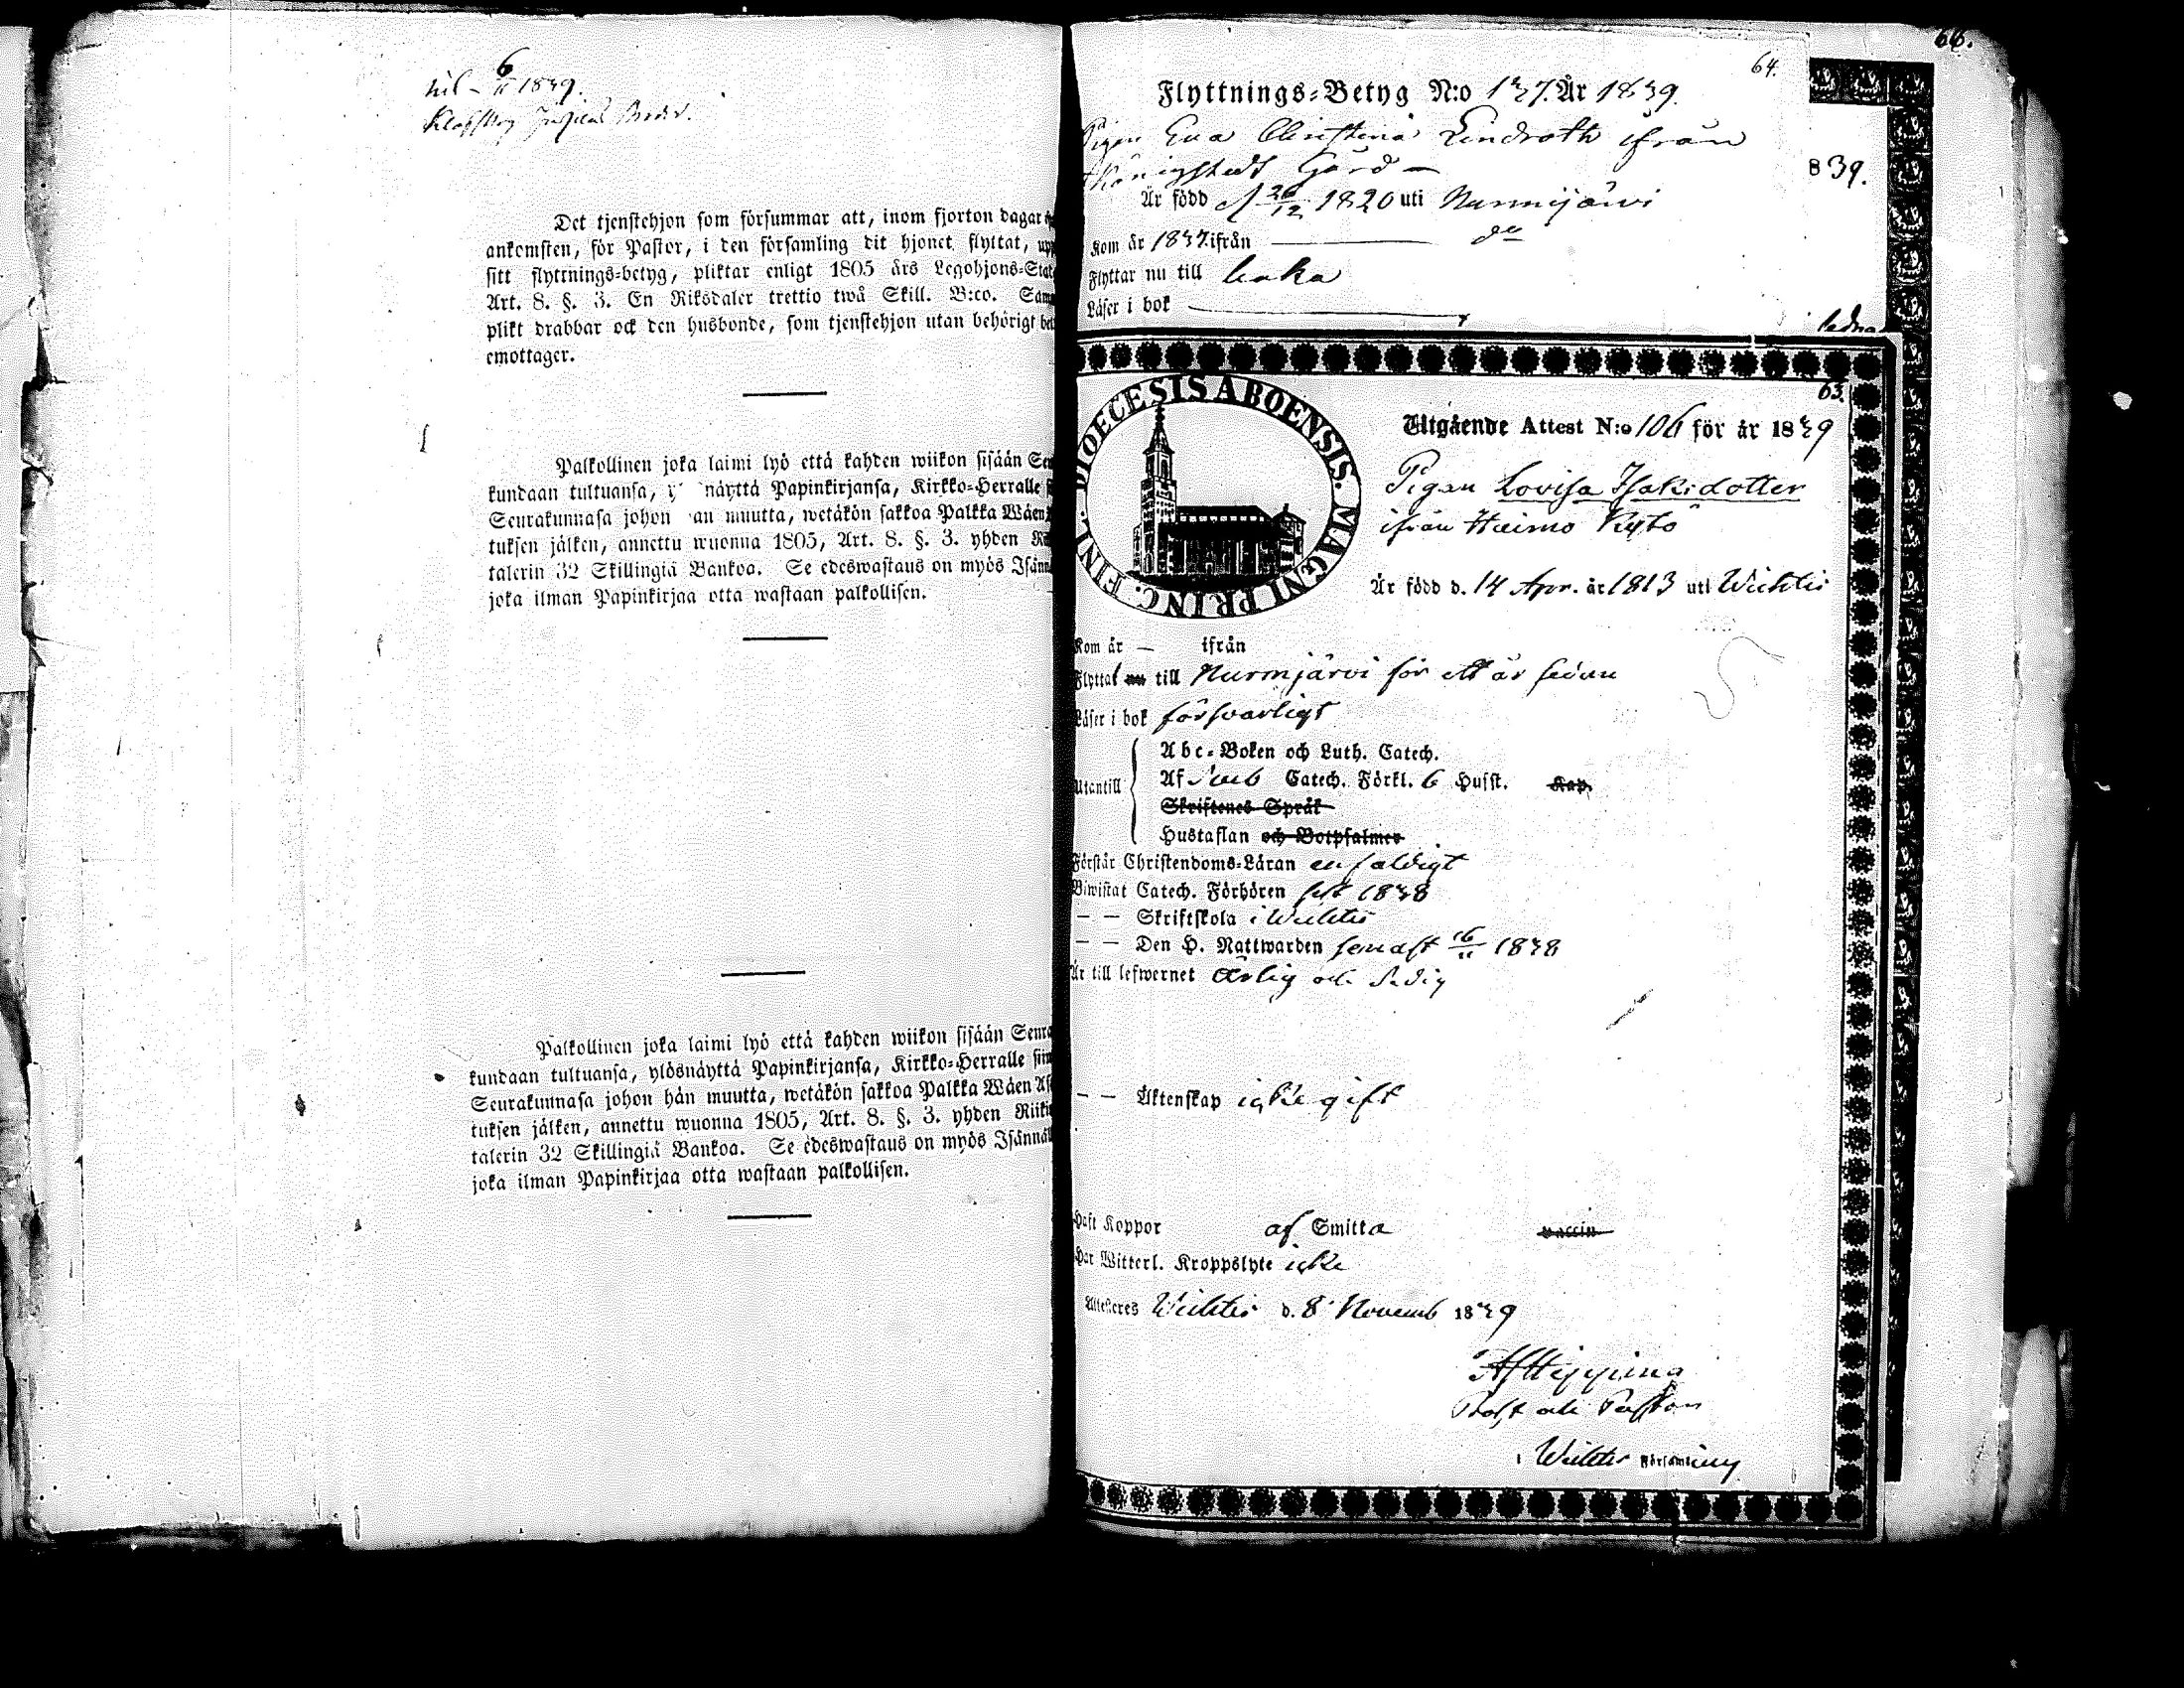 1839.
Det tjenstehjon som försummar att, inom fjorton dagar
ankomsten, för Pastor, i den församling dit hjonet flyttat,
sitt flyttnings-betyg, pliktar enligt 1805 års Legohjons-
Art. 8. §. 3. En Riksdaler trettio twå Skill. B:co.
plikt drabbar ock den husbonde, som tjenstehjon utan behörigt
emottager.
Palkollinen joka laimi lyö että kahden wiikon sisään
kundaan tultuansa, näyttä Papinkirjansa, Kirkko-Herralle
Seurakunnasa johon an muutta, wetäkön sakkoa Palkka Wäen
tuksen jälken, annettu wuonna 1805, Art. 8. §. 3. yhden
talerin 32 Skillingiä Bankoa. Se edeswastaus on myös
joka ilman Papinkirjaa otta wastaan palkollisen.
Palkollinen joka laimi lyö että kahden wiikon sisään Seura
kundaan tultuansa, ylösnäyttä Papinkirjansa, Kirkko-Herralle
Seurakunnasa johon hän muutta, wetäkön sakkoa Palkka Wäen
tuksen jälken, annettu wuonna 1805, Art. 8. §. 3. yhden
talerin 32 Skillingiä Bankoa. Se edeswastaus on myös
joka ilman Papinkirjaa otta wastaan palkollisen.
66.
64.
Flyttnings-Betyg N:o 137. År 1839.
Pigan Eva Christina Lindroth ifrån
Königstedt Gård
Är född d 26/12 1820 uti Nurmijärvi
839.
Kom år 1837 ifrån do
Flyttar nu till
Läser i bok
63.
DIOECESIS ABOENSIS. MAGNI PRINC. FINL.
Utgående Attest N:o 106 för år 1839
Pigan Lovisa Isaksdotter
ifrån Haimo Kytö
Är född d. 14 Apr. år 1813 uti Wichtis
Kom år — ifrån
Flyttat nu till Nurmjärvi för ett år sedan
Läser i bok försvarligt
Abc-Boken och Luth. Catech.
Utantill Af Sveb Catech. Förkl. 6 Husst. Kap.
Skriftenes Språk
Hustaflan och Botpsalmer
Förstår Christendoms-Läran enfaldigt
Biwistat Catech. Förhören sist 1838
— — Skriftskola i Wichtis
— — Den H. Nattwarden senast 16/11 1838
Är till lefwernet ärlig och sedig
— — Äktenskap icke gift
Haft Koppor af Smitta vaccin
Har Witterl. Kroppslyte icke
Attesteres Wichtis d. 8 Novemb 1839
Prost och Pastor
i Wichtis Församling